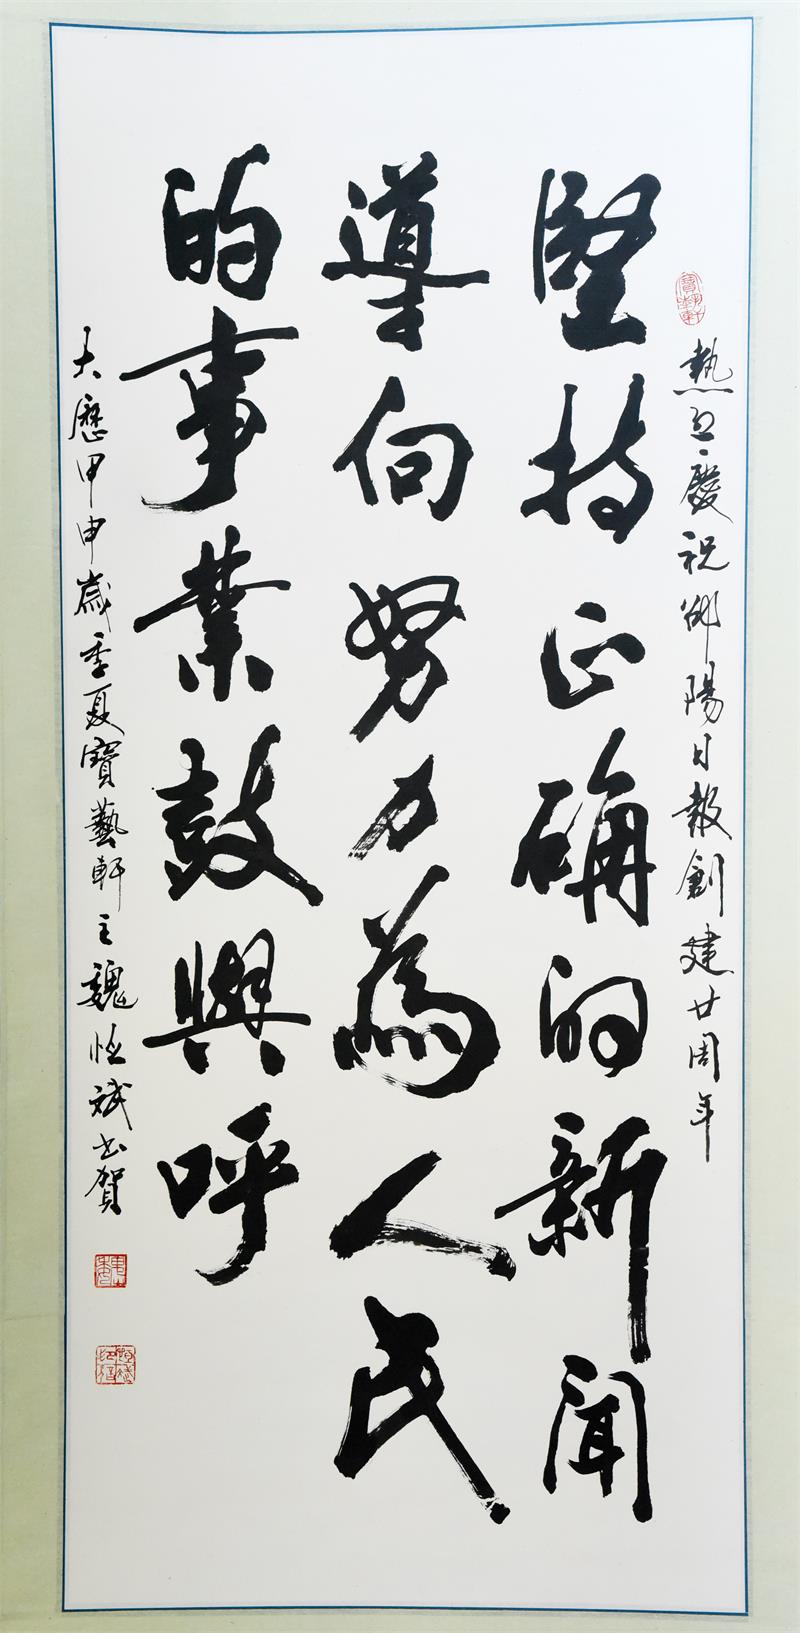 熱烈慶祝邵陽日報創建廿周年
堅持正确的新聞
導向努力為人民
的事業鼓與呼
大歷甲申歲季夏寶藝軒主魏恒斌書賀